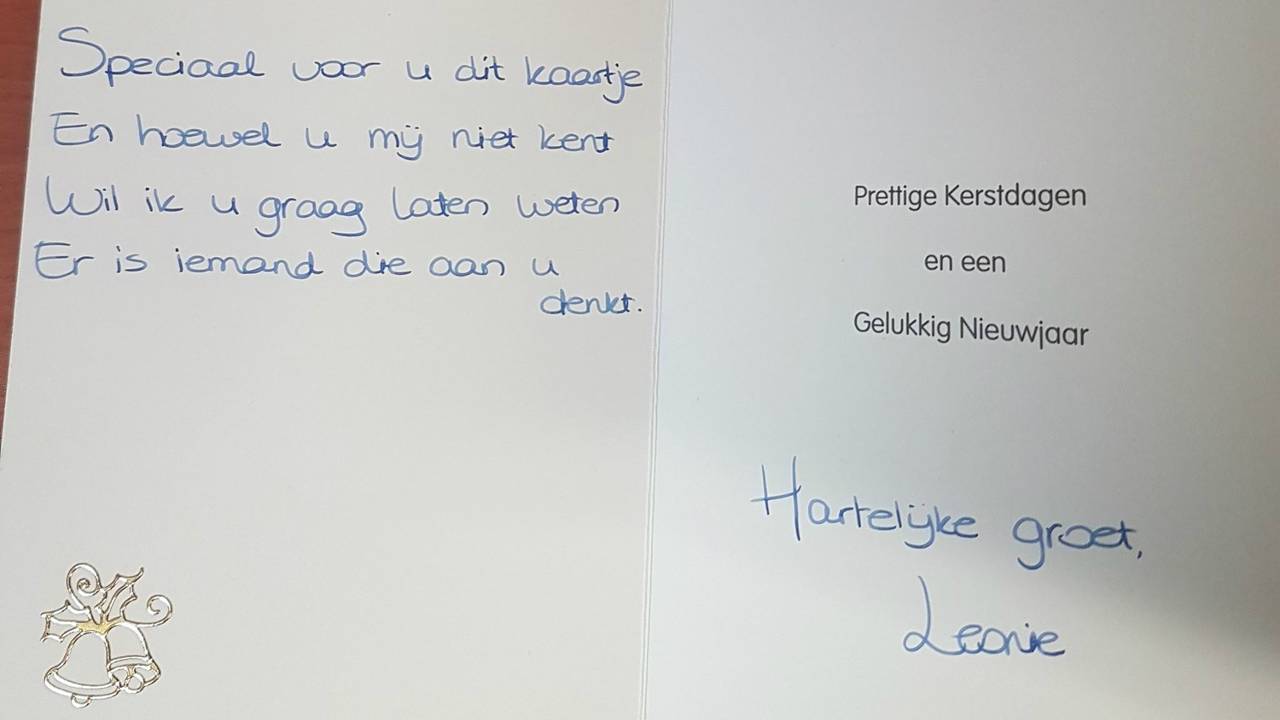 Speciaal voor u dit kaartje
En hoewel u mij niet kent
Wil ik u graag laten weten
Er is iemand die aan u
denkt.
Prettige Kerstdagen
en een
Gelukkig Nieuwjaar
Hartelijke groet,
Leonie